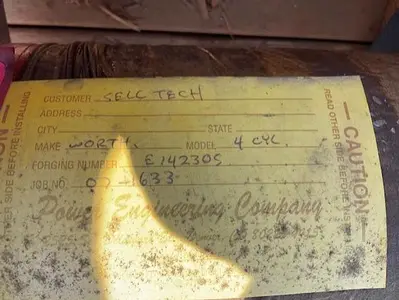 CUSTOMER SELL TECH
ADDRESS
CITY STATE
MAKE WORTH. MODEL 4 CYL.
FORGING NUMBER E14230S
JOB NO. 1633
Power Engineering Company
CAUTION
READ OTHER SIDE BEFORE
OTHER SIDE BEFORE INSTALLING